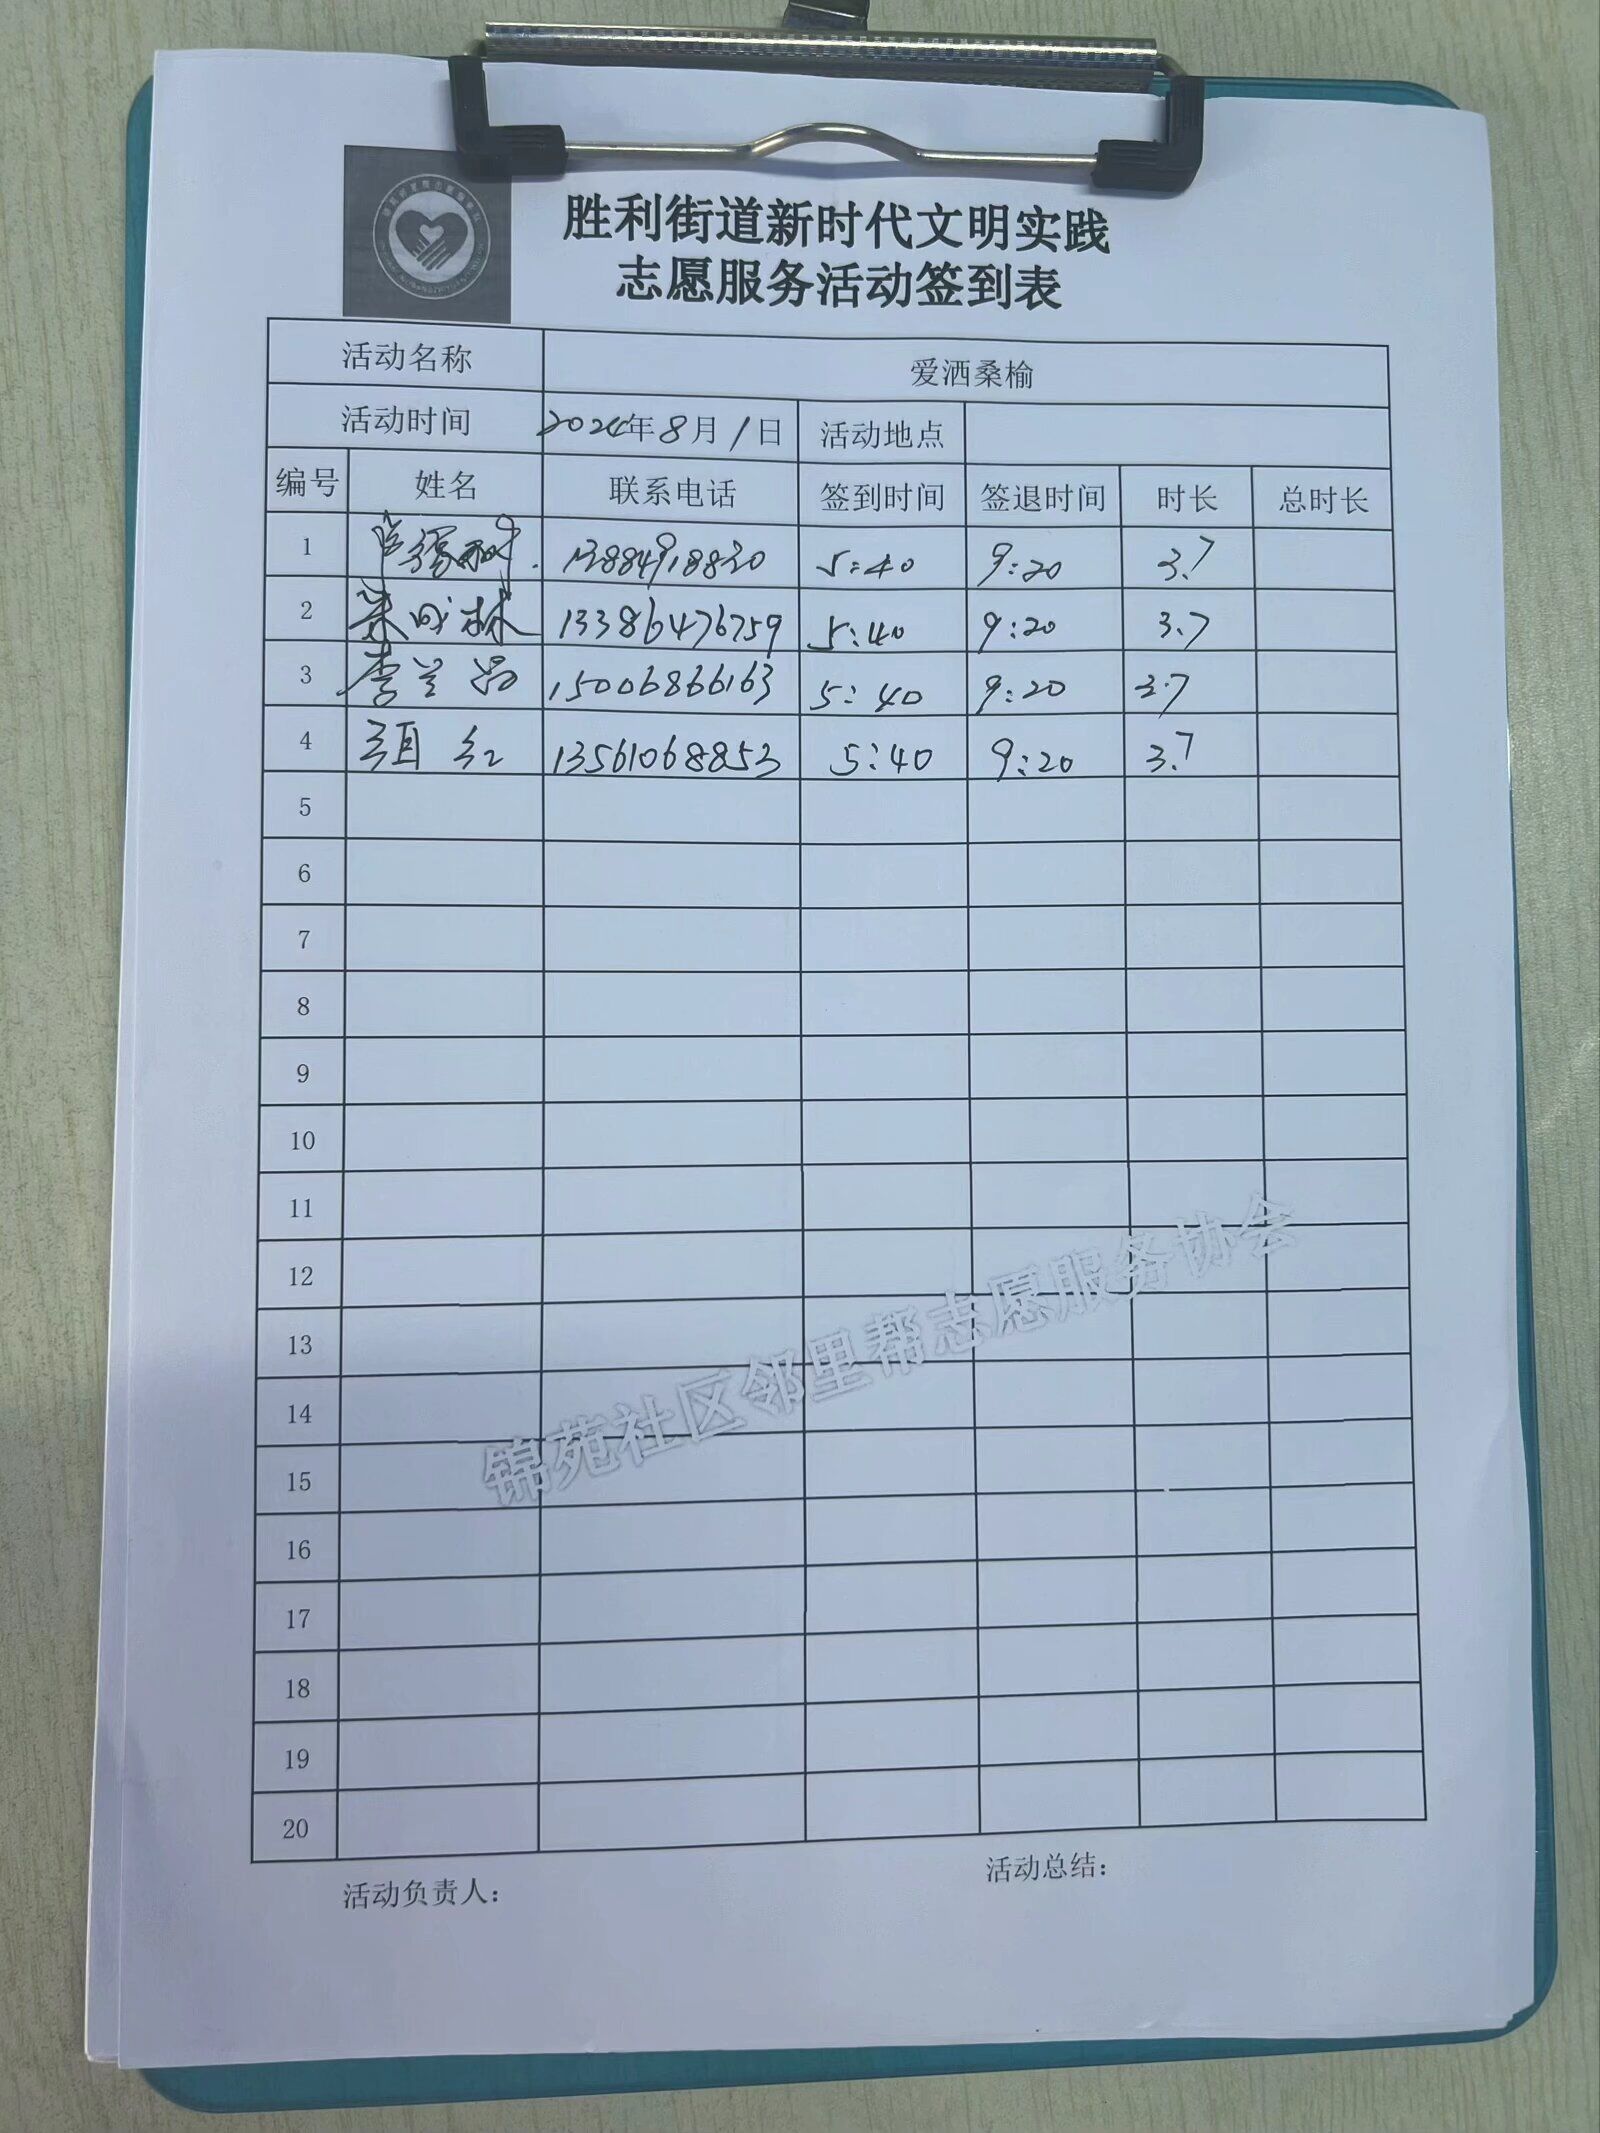 胜利街道新时代文明实践
志愿服务活动签到表
活动名称 爱洒桑榆
活动时间 2024年8月1日 活动地点
编号 姓名 联系电话 签到时间 签退时间 时长 总时长
1 13884918830 5:40 9:20 3.7
2 朱成林 13386476759 5:40 9:20 3.7
3 李兰 15006866163 5:40 9:20 3.7
4 项红 13561068853 5:40 9:20 3.7
5
6
7
8
9
10
11
12
13
14
15
16
17
18
19
20
锦苑社区邻里帮志愿服务协会
活动负责人： 活动总结：